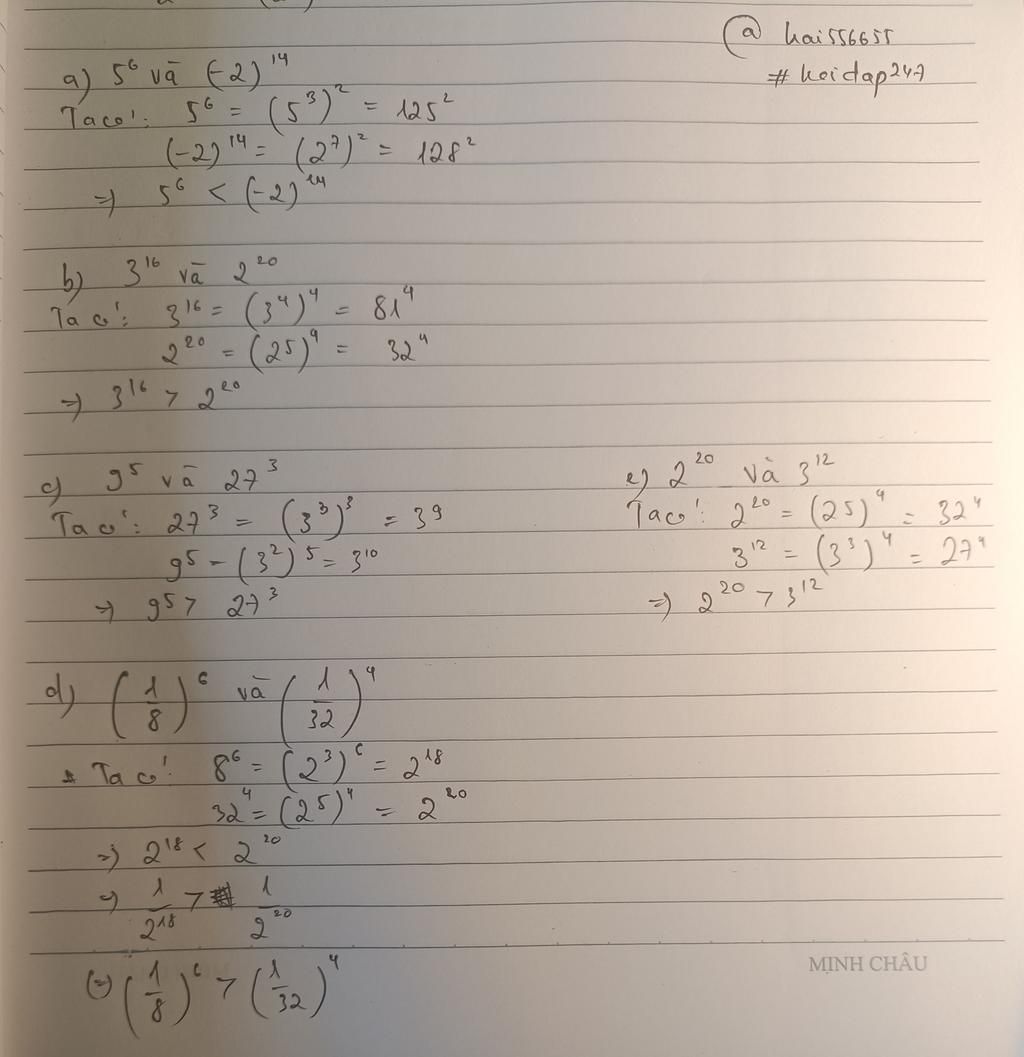 @ hai556655
# hoidap247
a) 5⁶ và (-2)¹⁴
Ta có: 5⁶ = (5³)² = 125²
(-2)¹⁴ = (2⁷)² = 128²
=> 5⁶ < (-2)¹⁴
b) 3¹⁶ và 2²⁰
Ta có: 3¹⁶ = (3⁴)⁴ = 81⁴
2²⁰ = (2⁵)⁴ = 32⁴
=> 3¹⁶ > 2²⁰
c) 9⁵ và 27³
Ta có: 27³ = (3³)³ = 3⁹
9⁵ = (3²)⁵ = 3¹⁰
=> 9⁵ > 27³
e) 2²⁰ và 3¹²
Ta có: 2²⁰ = (2⁵)⁴ = 32⁴
3¹² = (3³)⁴ = 27⁴
=> 2²⁰ > 3¹²
d) (1/8)⁶ và (1/32)⁴
Ta có: 8⁶ = (2³)⁶ = 2¹⁸
32⁴ = (2⁵)⁴ = 2²⁰
=> 2¹⁸ < 2²⁰
=> 1/2¹⁸ > 1/2²⁰
(=) (1/8)⁶ > (1/32)⁴
MINH CHÂU